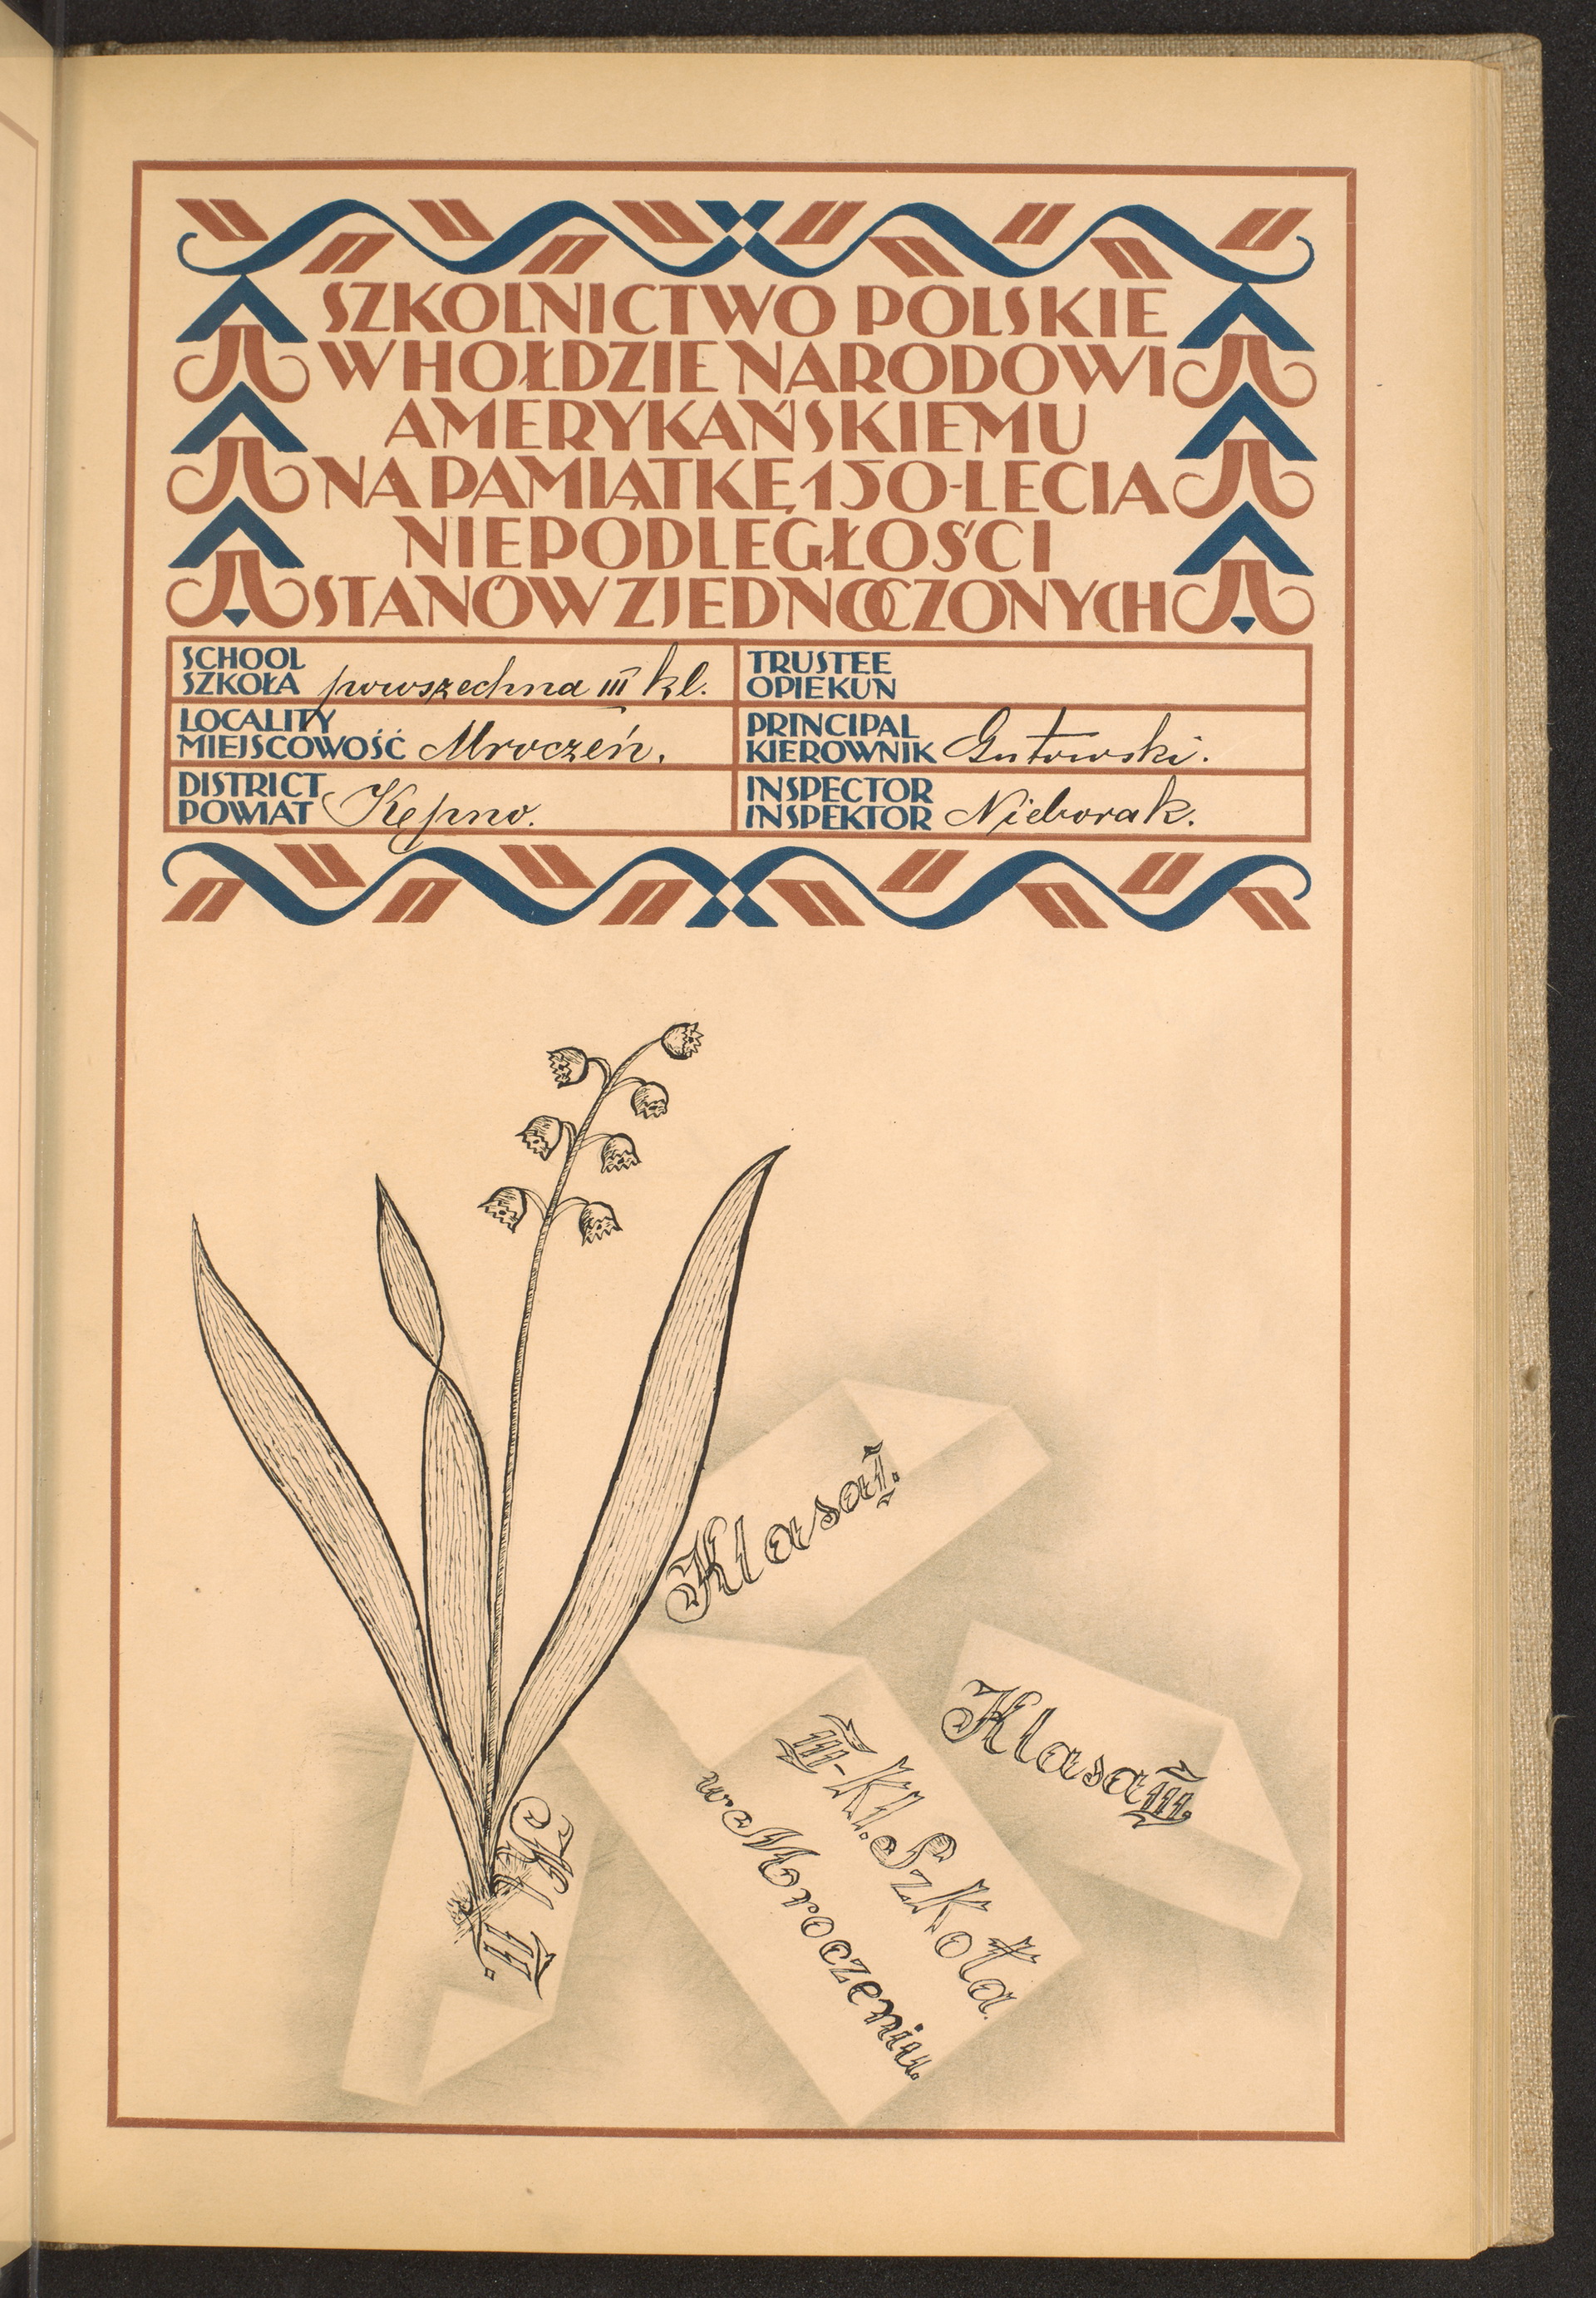 SZKOLNICTWO POLSKIE
W HOŁDZIE NARODOWI
AMERYKAŃSKIEMU
NA PAMIĄTKĘ 150-LECIA
NIEPODLEGŁOŚCI
STANÓW ZJEDNOCZONYCH
SCHOOL
SZKOŁA powszechna III kl.
TRUSTEE
OPIEKUN
LOCALITY
MIEJSCOWOŚĆ Mroczeń.
PRINCIPAL
KIEROWNIK Gutowski.
DISTRICT
POWIAT Kępno.
INSPECTOR
INSPEKTOR Nieborak.
Klasa I.
Klasa III.
III-Kl. Szkoła.
w Mroczeniu.
Kl II.